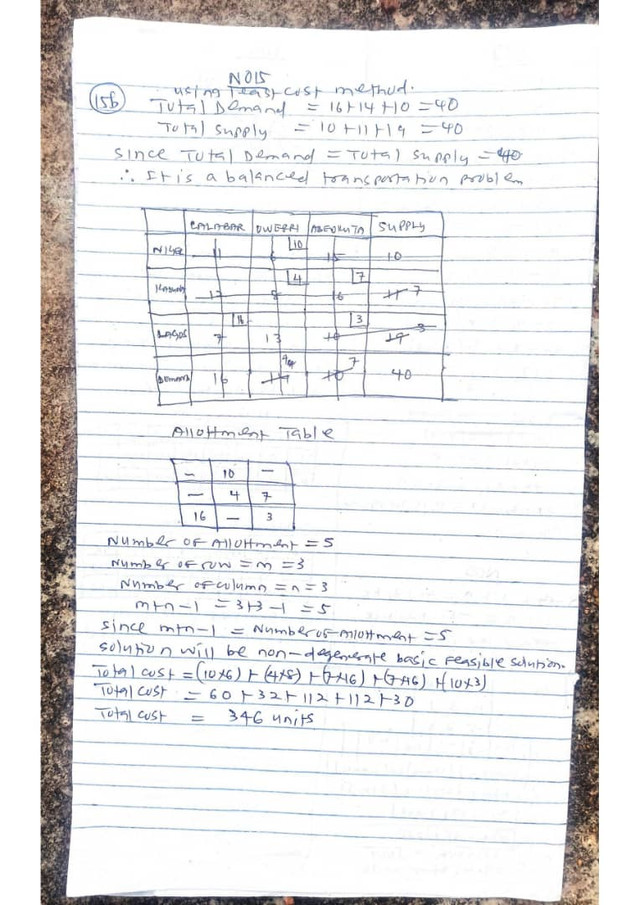 NO15
15b using Least cost method.
Total Demand = 16+14+10 = 40
Total Supply = 10+11+19 = 40
since Total Demand = Total supply = 40
∴ It is a balanced transportation problem
CALABAR OWERRI ABEOKUTA SUPPLY
10
11 6 15 10
4 7
8 16 11 7
16 3
LAGOS 7 13 10 19 3
4 7
DEMAND 16 14 10 40
Allottment Table
– 10 –
– 4 7
16 – 3
Number of Allottment = 5
Number of row = m = 3
Number of column = n = 3
m+n-1 = 3+3-1 = 5
since m+n-1 = Number of Allottment = 5
solution will be non-degenerate basic feasible solution.
Total cost = (10×6) + (4×8) + (7×16) + (7×16) + (10×3)
Total cost = 60 + 32 + 112 + 112 + 30
Total cost = 346 units